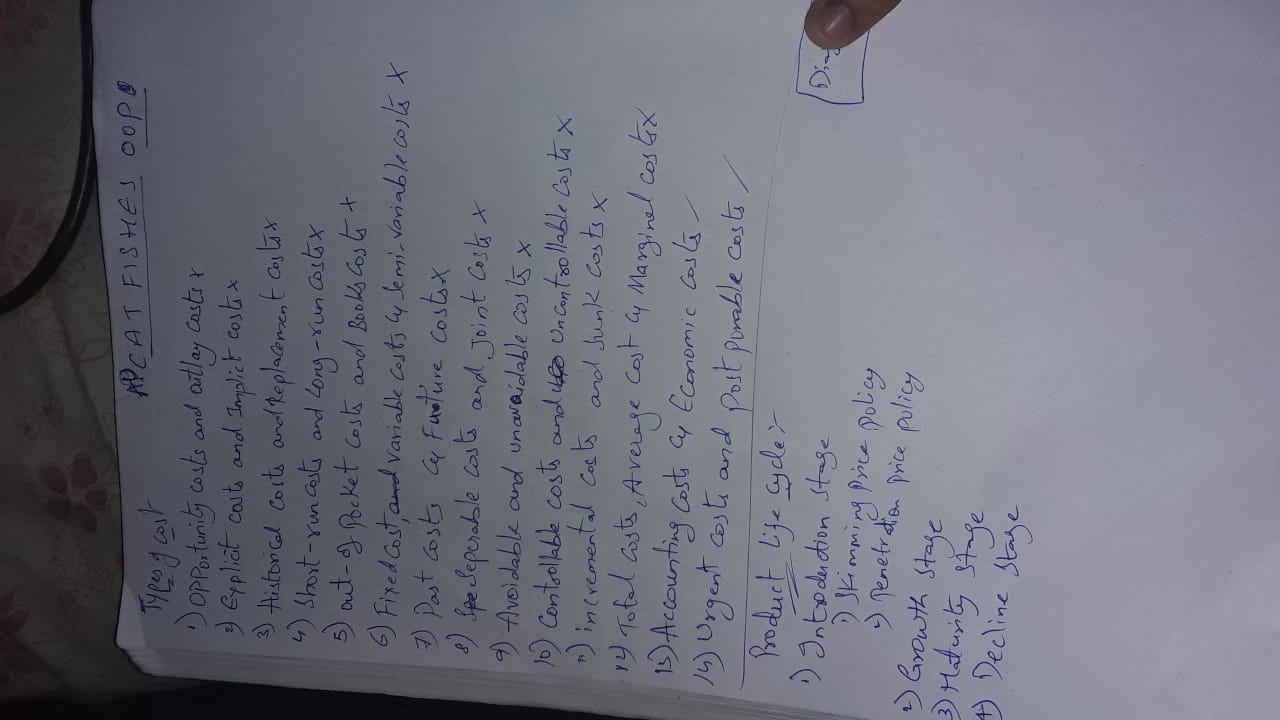 APCAT FISHES OOPU
Types of cost
1) Opportunity costs and outlay costs x
2) Explicit costs and Implicit costs x
3) Historical costs and Replacement costs x
4) Short-run costs and Long-run costs x
5) out-of pocket costs and Books costs x
6) Fixed cost, variable costs & semi-variable costs x
7) Past costs & Future costs x
8) Seperable costs and joint costs x
9) Avoidable and unavoidable costs x
10) Controllable costs and Uncontrollable costs x
11) incremental costs and sunk costs x
12) Total costs, Average cost & Marginal costs x
13) Accounting costs & Economic costs /
14) Urgent costs and Postponable costs /
Product Life Cycle:-
1) Introduction Stage
1) Skimming price policy
2) penetration price policy
2) Growth Stage
3) Maturity Stage
4) Decline Stage